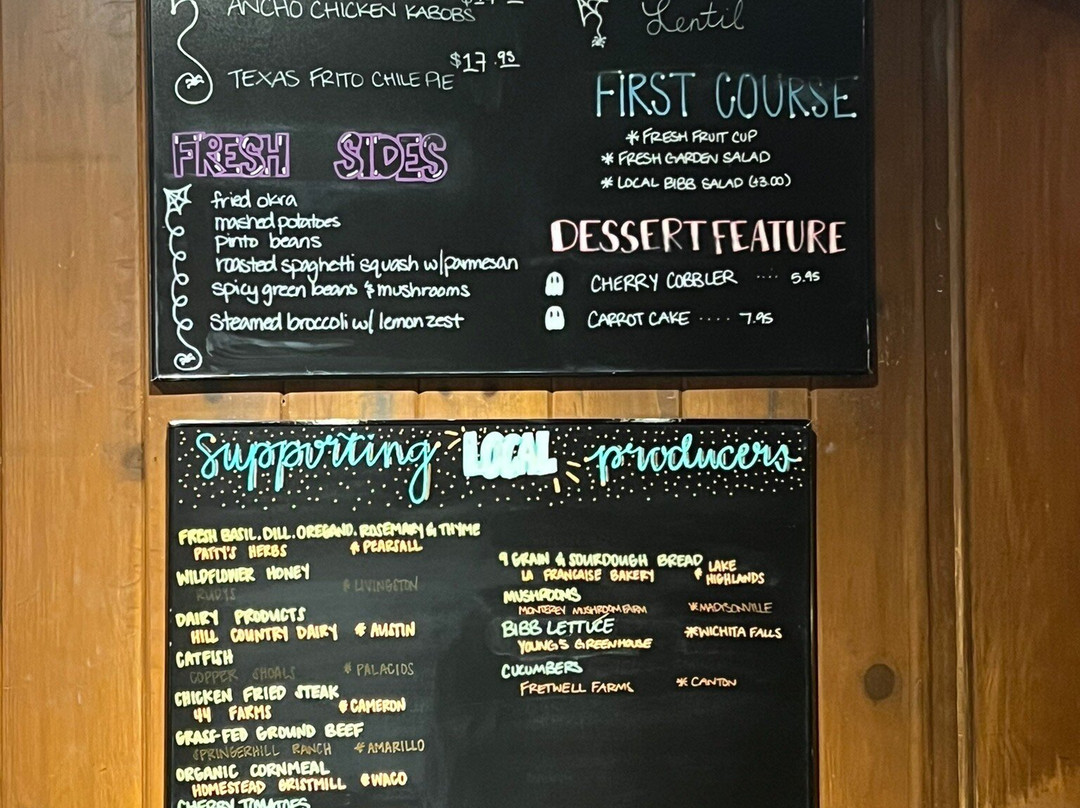 ANCHO CHICKEN KABOBS
TEXAS FRITO CHILE PIE $17.95
FRESH SIDES
fried okra
mashed potatoes
pinto beans
roasted spaghetti squash w/parmesan
spicy green beans & mushrooms
Steamed broccoli w/ lemon zest
Lentil
FIRST COURSE
* FRESH FRUIT CUP
* FRESH GARDEN SALAD
* LOCAL BIBB SALAD (+3.00)
DESSERT FEATURE
CHERRY COBBLER .... 5.95
CARROT CAKE .... 7.95
Supporting LOCAL producers
FRESH BASIL, DILL, OREGANO, ROSEMARY & THYME
PATTY'S HERBS * PEARSALL
WILDFLOWER HONEY
RUDYS * LIVINGSTON
DAIRY PRODUCTS
HILL COUNTRY DAIRY * AUSTIN
CATFISH
COPPER SHOALS * PALACIOS
CHICKEN FRIED STEAK
44 FARMS * CAMERON
GRASS-FED GROUND BEEF
SPRINGERHILL RANCH * AMARILLO
ORGANIC CORNMEAL
HOMESTEAD GRISTMILL * WACO
CHERRY TOMATOES
9 GRAIN & SOURDOUGH BREAD
LA FRANCAISE BAKERY * LAKE HIGHLANDS
MUSHROOMS
MONTEREY MUSHROOM FARM * MADISONVILLE
BIBB LETTUCE
YOUNG'S GREENHOUSE * WICHITA FALLS
CUCUMBERS
FRETWELL FARMS * CANTON